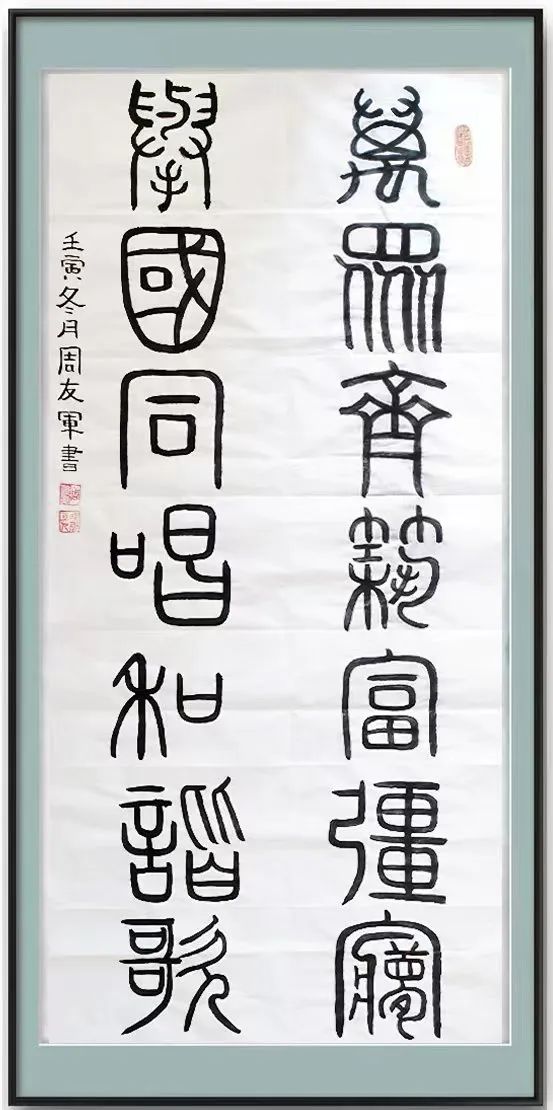 萬眾齊築富彊㝱
舉國同唱和諧歌
壬寅冬月周友軍書